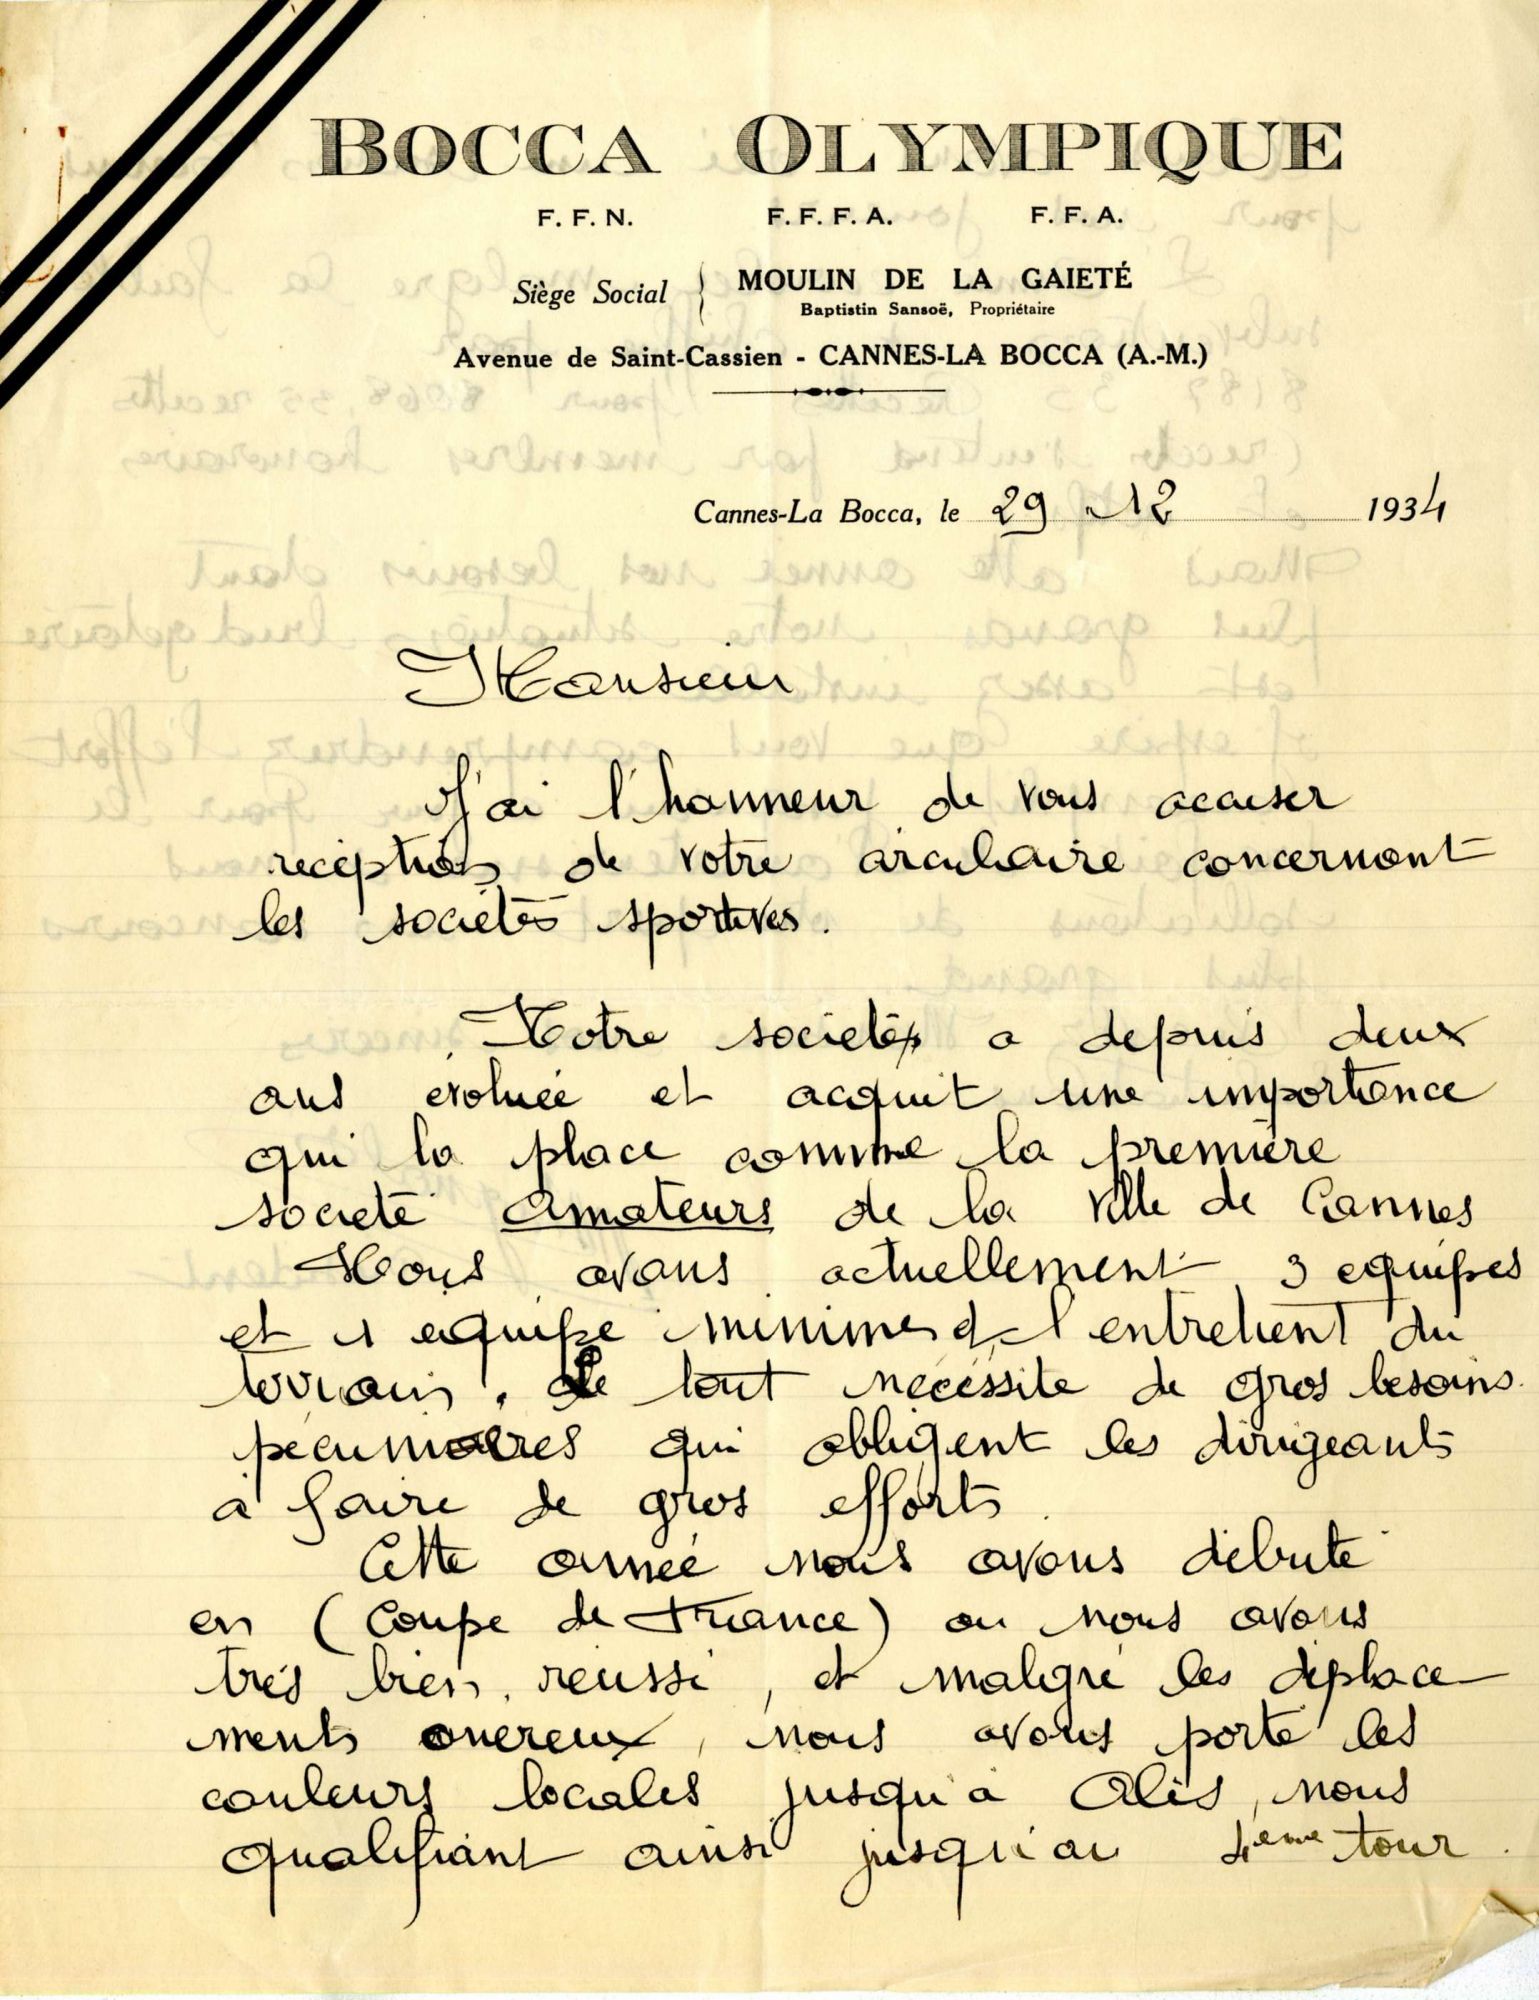 BOCCA OLYMPIQUE
F. F. N. F. F. F. A. F. F. A.
Siège Social MOULIN DE LA GAIETÉ
Baptistin Sansoë, Propriétaire
Avenue de Saint-Cassien - CANNES-LA BOCCA (A.-M.)
Cannes-La Bocca, le 29 12 1934
Monsieur
J'ai l'honneur de vous accuser
réception de votre circulaire concernant
les sociétés sportives.
Notre société a depuis deux
ans évoluée et acquit une importance
qui la place comme la première
société amateurs de la ville de Cannes
Nous avons actuellement 3 équipes
et 1 équipe minimes et l'entretient du
terrain. Le tout nécéssite de gros besoins
pécuniaires qui obligent les dirigeants
à faire de gros efforts.
Cette année nous avons débuté
en (Coupe de France) ou nous avons
très bien réussi, et malgré les déplace
ments onéreux, nous avons porté les
couleurs locales jusqu'à Alès, nous
qualifiant ainsi jusqu'au 4eme tour.